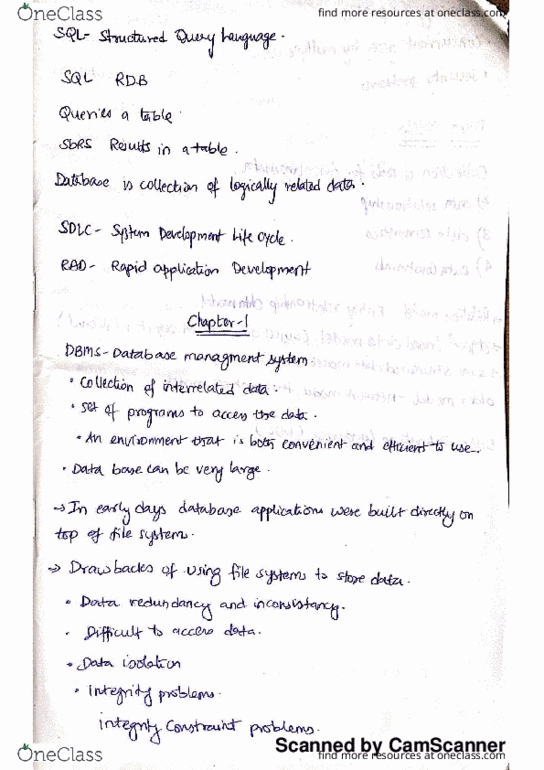 OneClass
find more resources at oneclass.com
SQL- Structured Query Language.
SQL RDB
Queries a table.
SbRS Results in a table.
Database is collection of logically related data.
SDLC - System Development Life Cycle.
RAD- Rapid application Development
Chapter-1
DBMS- Database managment system
• Collection of interrelated data.
• Set of programs to access the data.
• An environment that is both convenient and efficient to use.
• Data base can be very large.
→ In early days database applications were built directly on
top of file system.
→ Drawbacks of using file systems to store data.
• Data redundancy and inconsistancy.
• Difficult to access data.
• Data isolation
• integrity problems.
integrity Constraint problems.
Scanned by CamScanner
OneClass
find more resources at oneclass.com